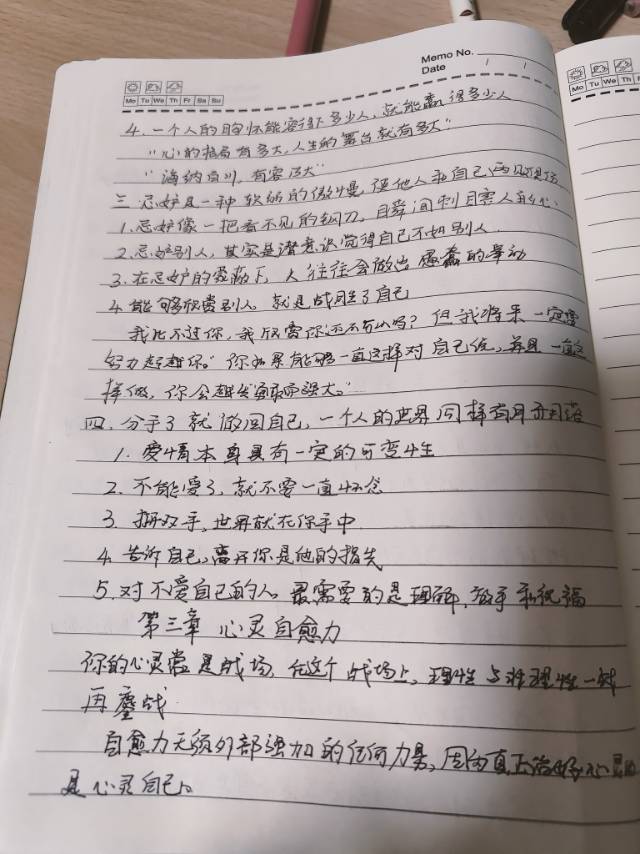 Memo No.
Date / /
Mo Tu We Th Fr Sa Su
Mo Tu We Th
4. 一个人的胸怀能容得下多少人, 就能赢得多少人
"心的格局有多大, 人生的舞台就有多大"
"海纳百川, 有容乃大"
三. 忌妒是一种软弱的傲慢, 使他人和自己两败俱伤
1. 忌妒像一把看不见的钢刀, 瞬间刺目害人的心
2. 忌妒别人, 其实是潜意识觉得自己不如别人
3. 在忌妒的蒙蔽下, 人往往会做出愚蠢的举动
4. 能够欣赏别人, 就是战胜了自己
我比不过你, 我欣赏你还不可以吗? 但我将来一定要
努力超越你。"你如果能够一直这样对自己说, 并且一直这
样做, 你会越发强大。"
四. 分手了就做回自己, 一个人的世界同样有月亦有落
1. 爱情本身具有一定的可变性
2. 不能爱了, 就不要一直怀念
3. 挥双手, 世界就在你手中
4. 告诉自己, 离开你是他的损失
5. 对不爱自己的人, 最需要的是理解, 放手和祝福
第三章 心灵自愈力
你的心灵常是战场, 在这个战场上, 理性与非理性一对
再鏖战
自愈力无须外部强加的任何力量, 因为真正治好心灵的
是心灵自己。